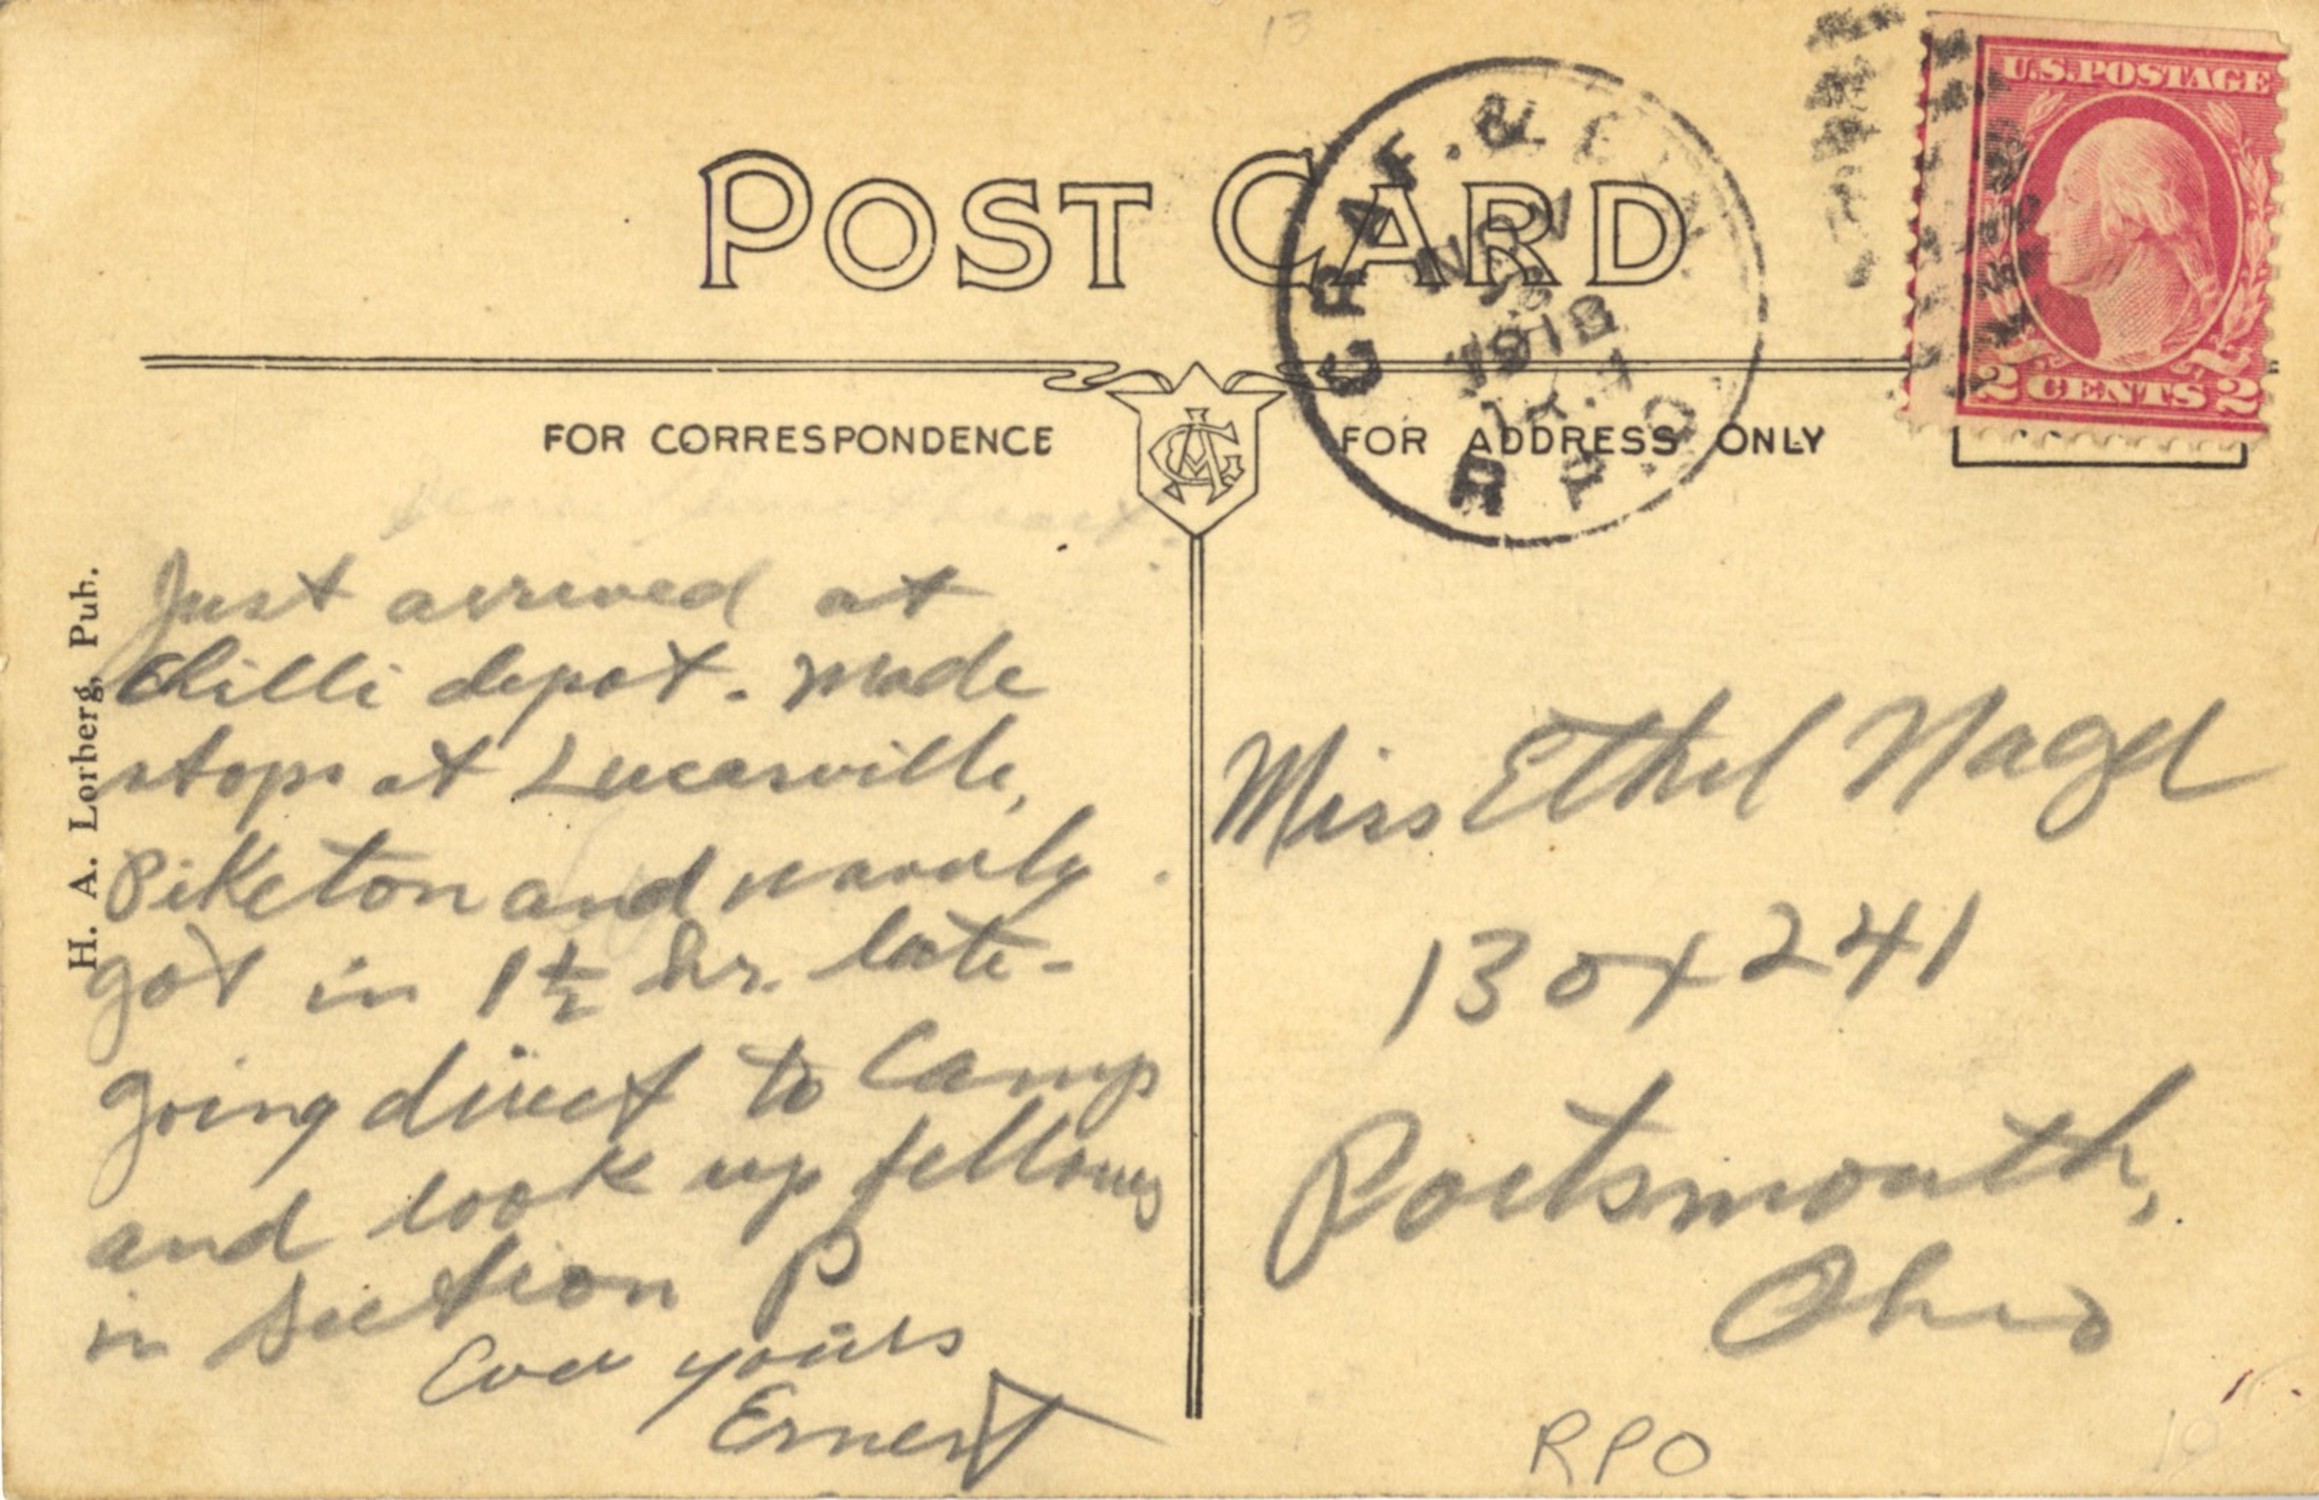 13
POST CARD
U.S. POSTAGE
2 CENTS 2
GRAF. &
NOV
1918
R.P.O.
FOR CORRESPONDENCE
FOR ADDRESS ONLY
H. A. Lorberg, Pub.
Dear Sweetheart.
Just arrived at
Chilli depot. Made
stops at Lucasville,
Piketon and Waverly.
got in 1 1/2 hr. late-
going direct to Camp
and look up fellows
in Section P
Ever yours
Ernest
Miss Ethel Nagel
Box 241
Portsmouth,
Ohio
RPO
10